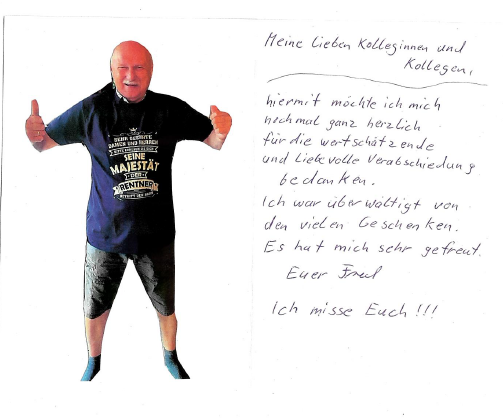 SEHR GEEHRTE
DAMEN UND HERREN
SEINE
MAJESTÄT
DER
RENTNER
BETRITT DEN
Meine lieben Kolleginnen und
Kollegen,
hiermit möchte ich mich
nochmal ganz herzlich
für die wertschätzende
und liebevolle Verabschiedung
bedanken.
Ich war überwältigt von
den vielen Geschenken.
Es hat mich sehr gefreut.
Euer
Ich misse Euch !!!